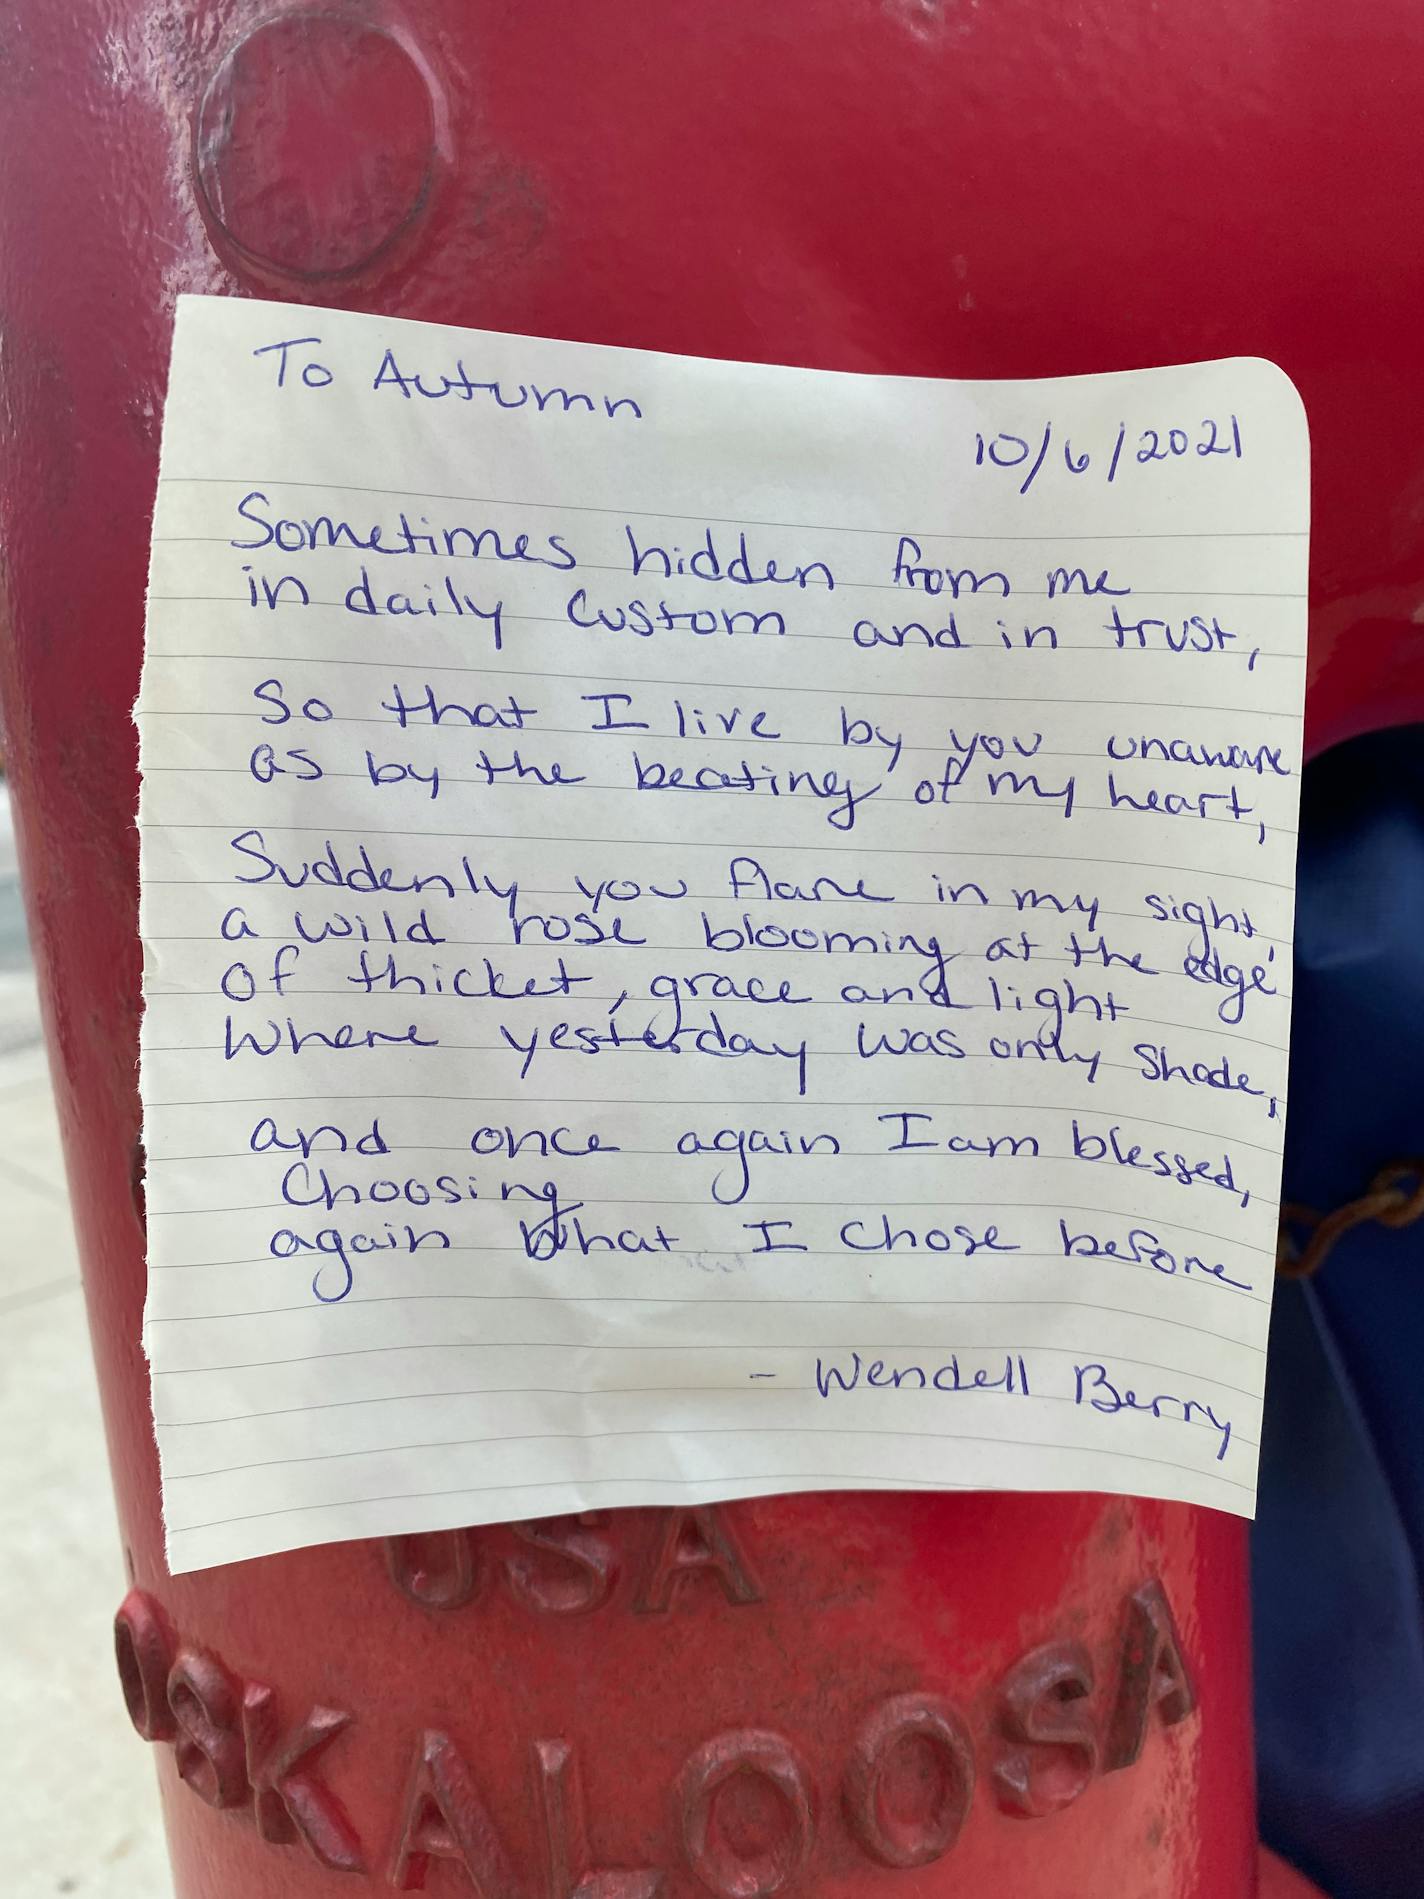 To Autumn
10/6/2021
Sometimes hidden from me
in daily custom and in trust,
So that I live by you unaware
as by the beating of my heart,
Suddenly you flare in my sight,
a wild rose blooming at the edge
of thicket, grace and light
where yesterday was only shade,
and once again I am blessed,
choosing
again what I chose before
- Wendell Berry
USA
OSKALOOSA